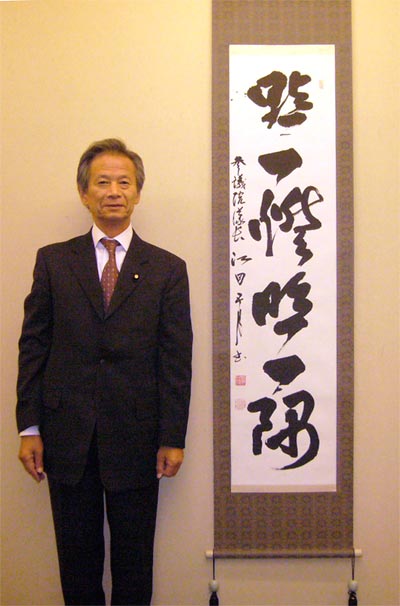 點一燈照一隅
参議院議長 江田五月 書